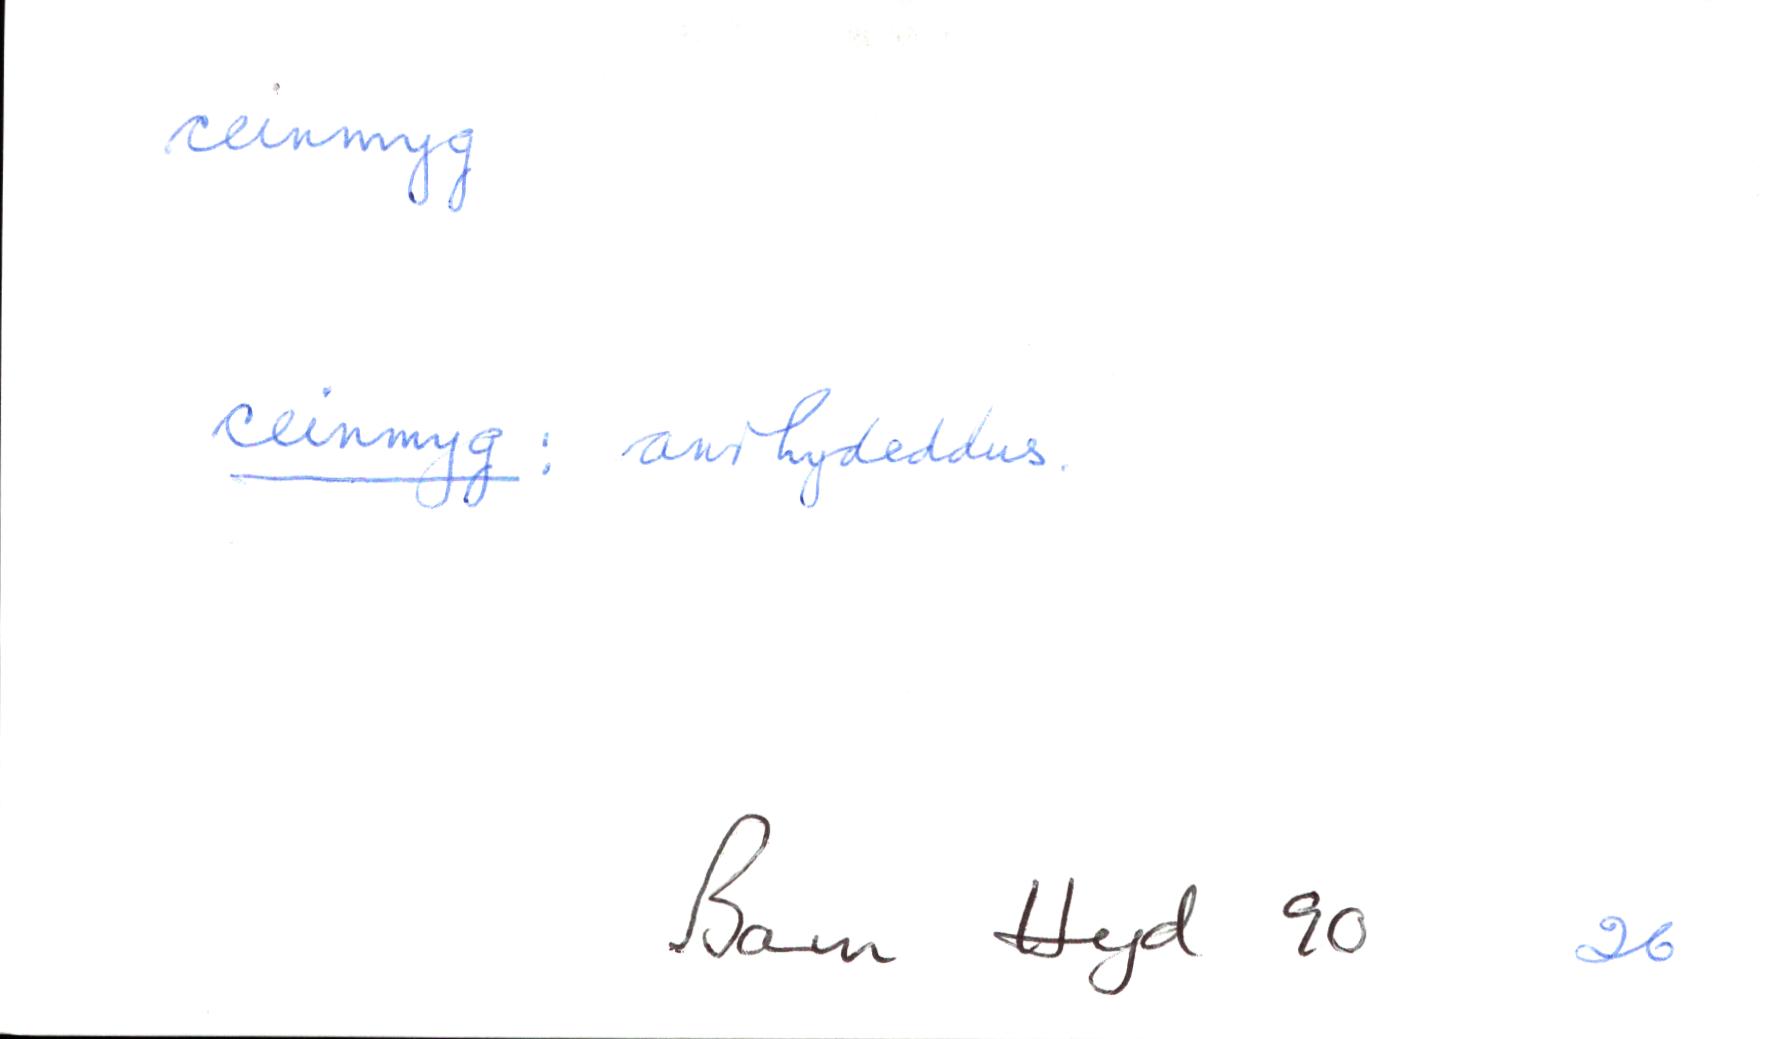 ceinmyg
ceinmyg: anrhydeddus.
Barn Hyd 90 26